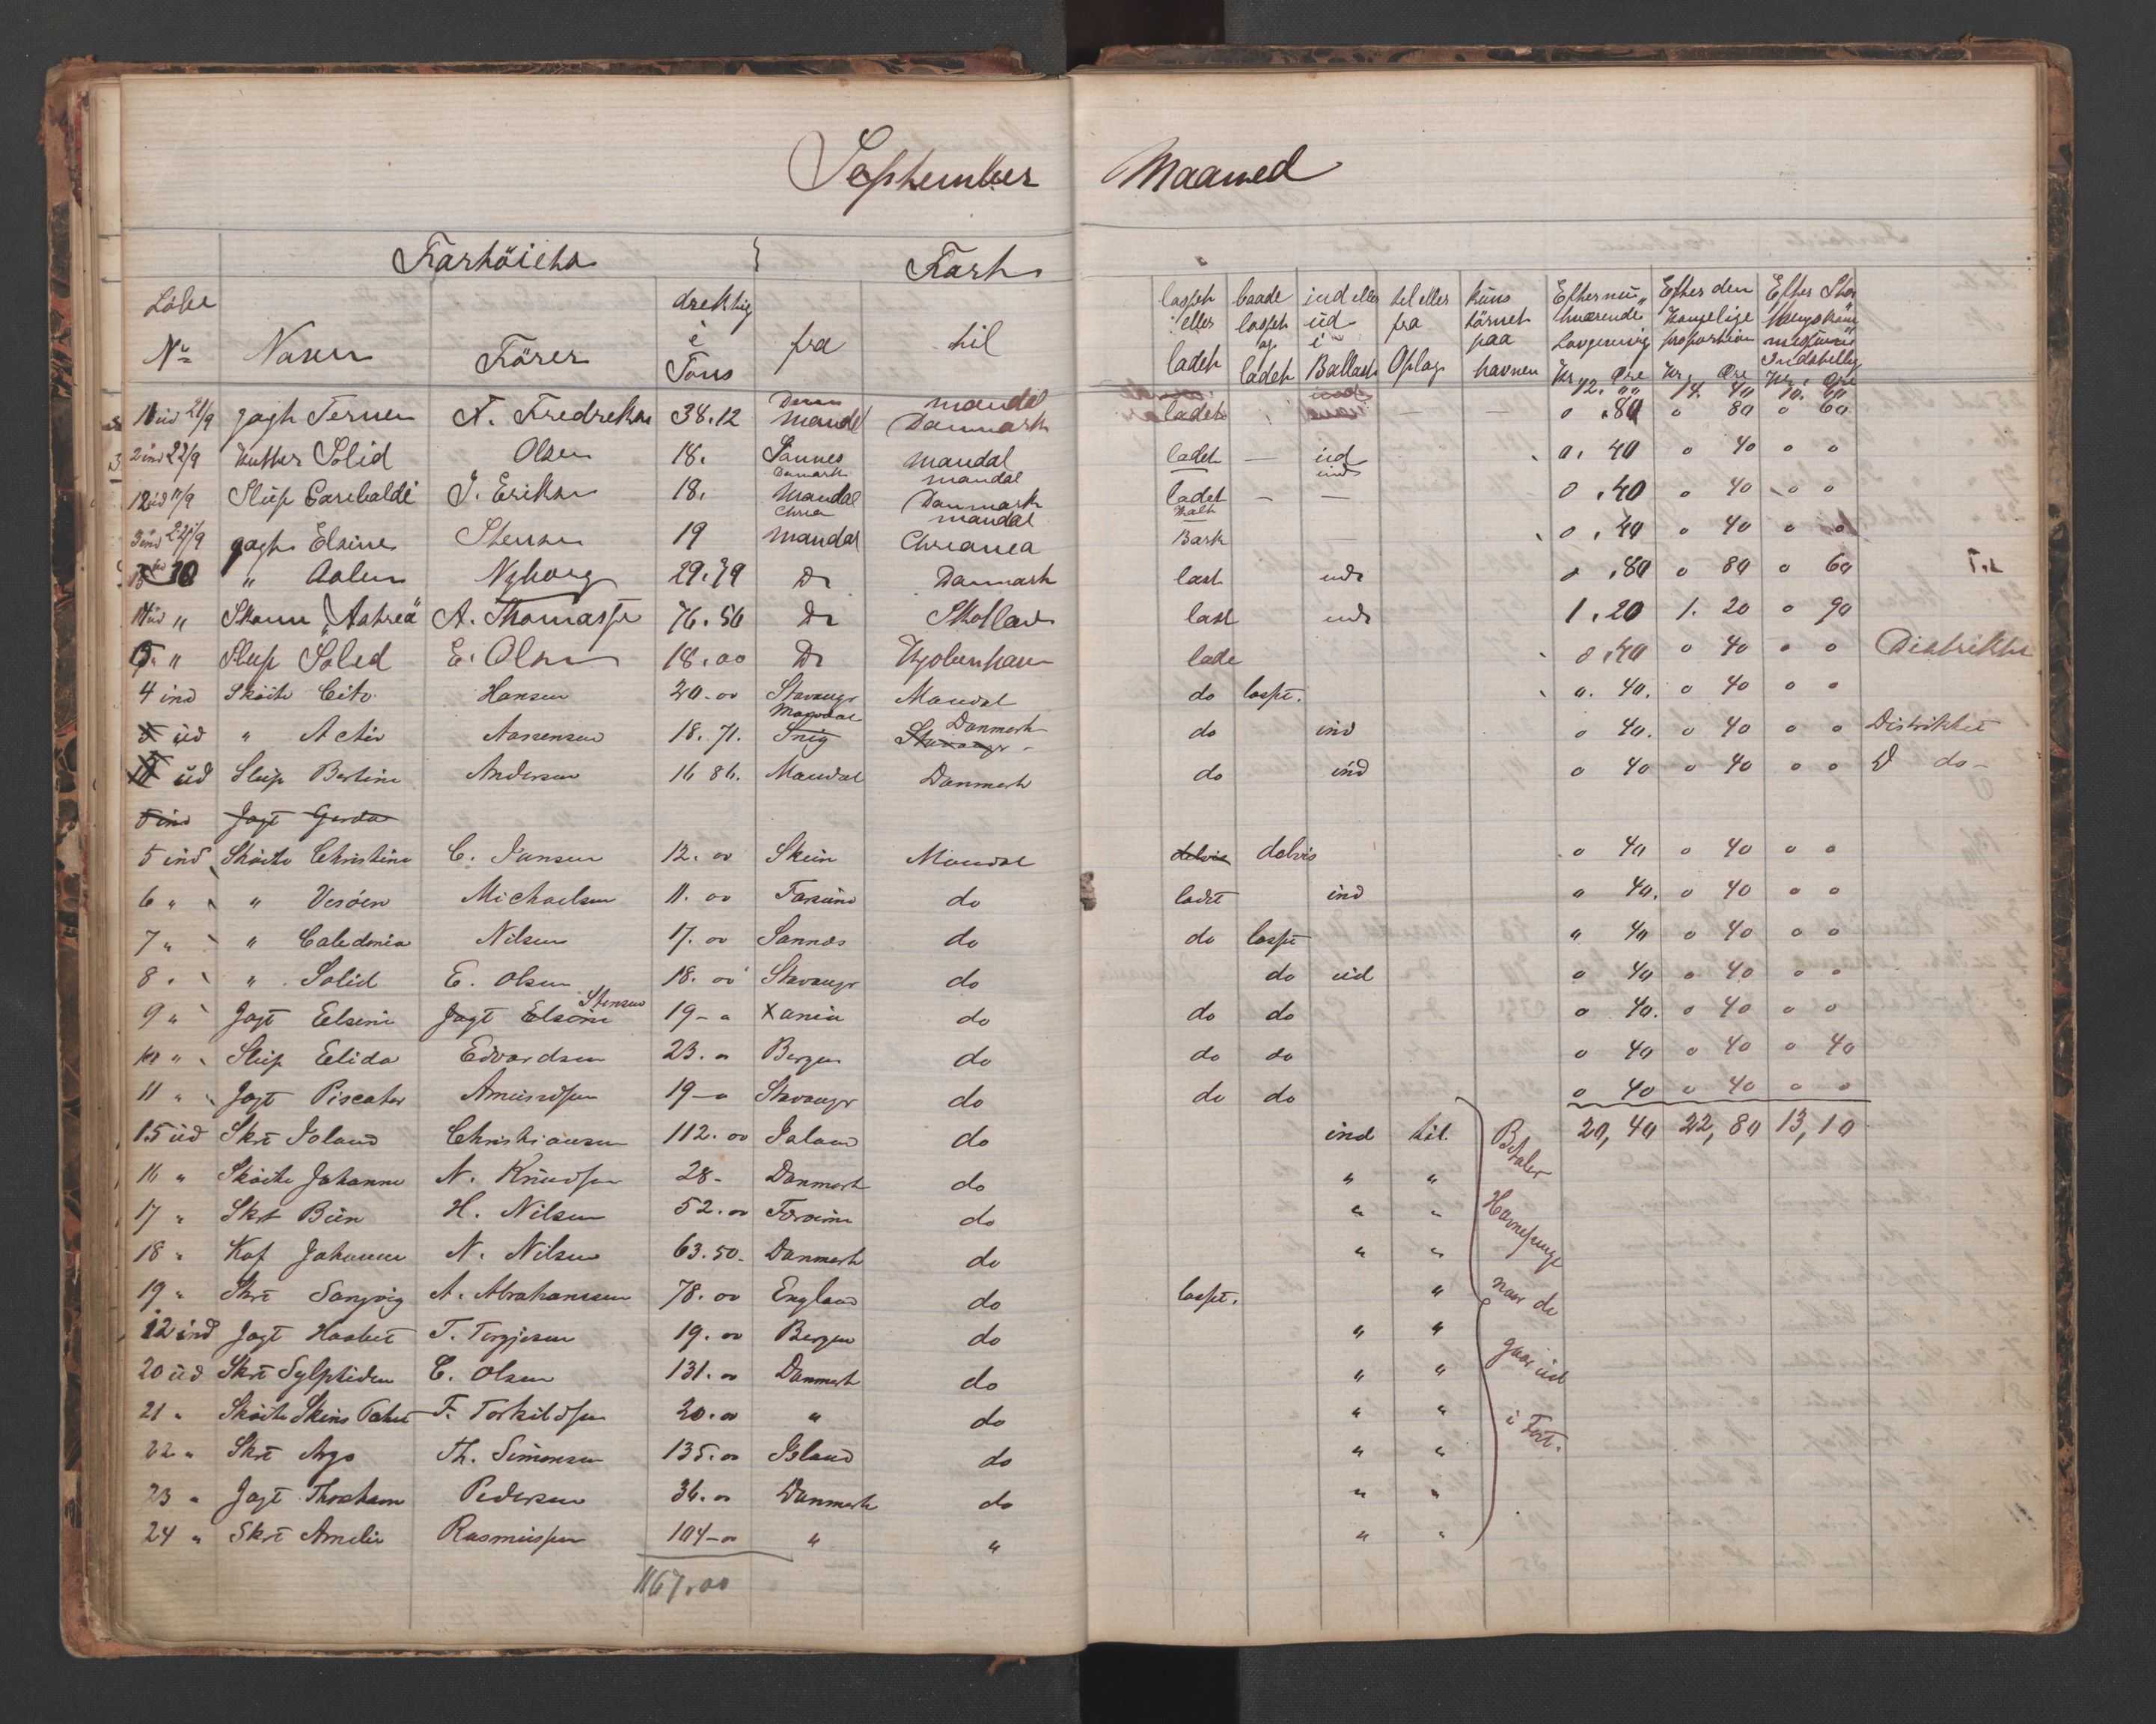 September Maaned
Farköiets Fart
Löbe No Navn Förer drektig i Tons fra til losset eller ladet baade losset og ladet ind eller ud i Ballast til eller fra Oplag kuns törnet paa havnen Efter nu værende Lovgivning Kr. Øre Efter den Kongelige proposition Kr. Øre Efter Stor Indstilling Kr. Øre
12. 14. 40 10. 60
mandal
11 ud 21/9 Jagt Ternen N. Fredreksen 38.12 Mandal Danmark ladet — — 0.80 0 80 0 60
2 ind 22/9 Kutter Solid Olsen 18. Sannes Mandal ladet — ud 0.40 0 40 0 0
Danmark mandal ind
12 ud 11/9 Slup Garebaldi J. Eriksen 18. Mandal Danmark ladet — — 0.40 0 40 0 0
Chria mandal
3 ind 22/9 Jagt Elsine Stensen 19 Mandal Chreania Bark — 0.40 0 40 0 0
" Aolen Nyborg 29.79 Do Danmark last ud 0.80 0 80 0 60
14 ud " Skonn "Astrea" A. Thomassen 76.56 Do Skotland last ud 1.20 1.20 0 90
15 " Slup Soled E. Olsen 18.00 Do Kjobenhavn lade 0.40 0 40 0 0 Distriktet
4 ind Skøite Cito Hansen 20-00 Stavanger Mandal do losset. 0.40. 0 40 0 0
Mandal Danmark
ud " Activ Aanensen 18.71. Snig Stavanger - do ind 0 40. 0 40 0 0 Distriktet
ud Slup Bertine Andersen 16 86. Mandal Danmark do ind 0 40 0 40 0 0 do-
5 ind Jagt Gerda
5 ind Skøite Christine C. Jansen 12.00 Skein Mandal delvis delvis 0 40 0 40 0 0
6 " " Michaelsen 11.00 Farsund do ladet ind 0 40. 0 40 0 0
7 " " Caledonia Nilsen 17.00 Sannæs do do losset " 40 0 40 0 0
8 " " Solid E. Olsen 18.00 Stavanger do do ud 0 40 0 40 0 0
Stensen
9 " Jagt Elseni Jagt Elseni 19-0 Xania do do do 0 40. 0 40 0 0
10 " Slup Elida Edvardsen 23.0 Bergen do do do 0 40 0 40 0 40
11 " Jagt Piscator Amundsen 19-0 Stavanger do do do 0 40 0 40 0 0
15 ud Skrt Island Christiansen 112.00 Island do ind til. Betaler 20,40 22,80 13,10
16 " Skøite Johanne N. Knudsen 28- Danmark do " "
17 " Skrt Bien H. Nilsen 52.00 do " " Havnepenge
18 " Kof Johanne N. Nilsen 63.50- Danmark do " "
19 " Skrt Sangvig A. Abrahamsen 78.00 England do losset. " naar de
12 ind Jagt Haabet T. Tergjesen 19.00 Bergen do " "
20 ud Skrt Sylphiden C. Olsen 131.00 Danmark do " " gaar ud
21 " Skøite T. Torkildsen 20.00 " do " "
22 " Skrt Argo Th. Simonsen 135.00 Island do " " i Fart.
23 " Jagt Pedersen 36.00 Danmark do " "
24 " Skrt Amelie Rasmussen 104-00 " " " "
1167.00